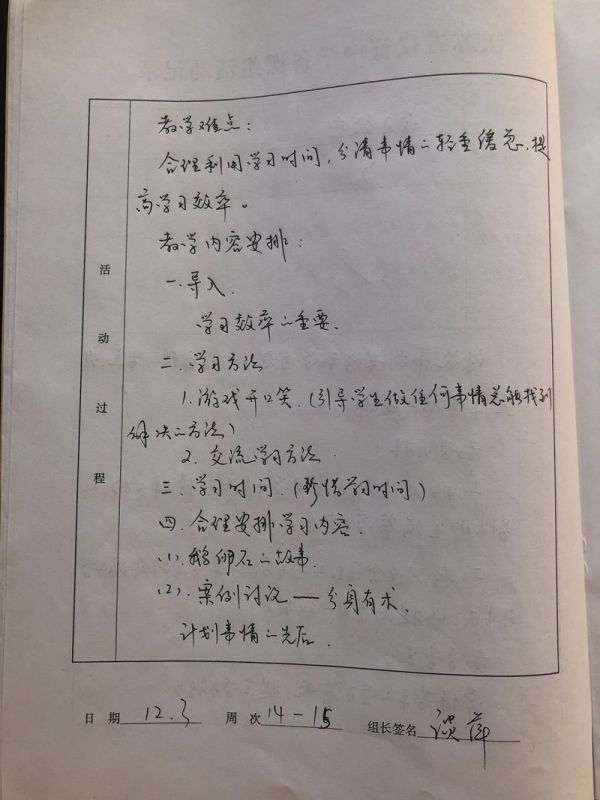 教学难点：
合理利用学习时间，分清事情的轻重缓急，提
高学习效率。
教学内容安排：
一.导入.
学习效率的重要.
二.学习方法
1.游戏开口笑.(引导学生做任何事情总能找到
解决的方法)
2.交流学习方法.
三.学习时间.(珍惜学习时间)
四.合理安排学习内容.
(1).鹅卵石的故事.
(2).案例讨论——分身有术.
计划事情的先后.
活动过程
日 期 12.3 周 次 14-15 组长签名